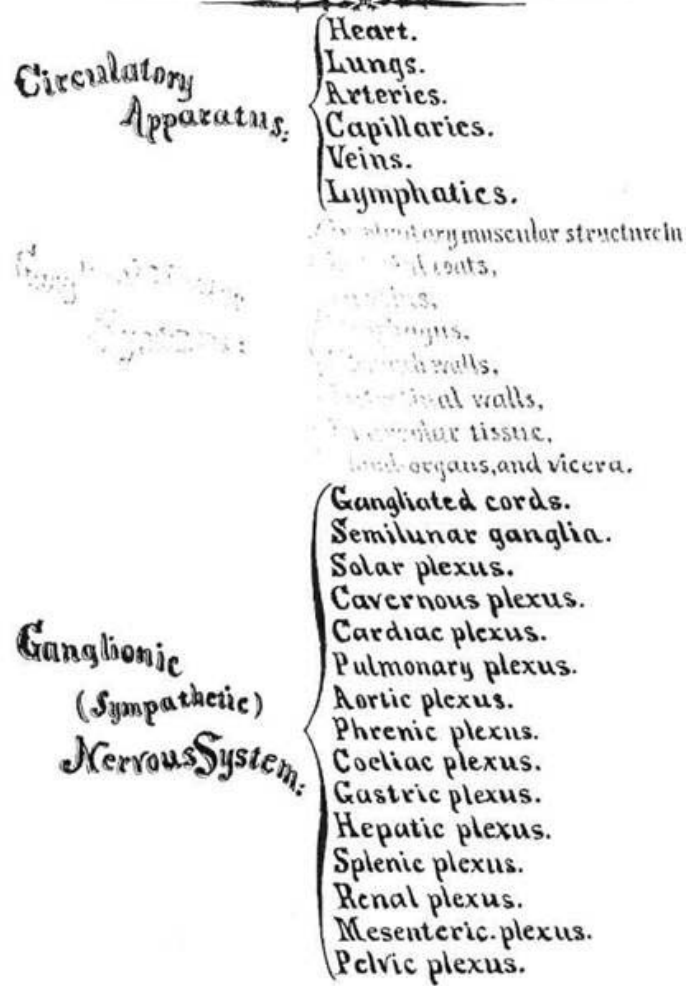 Circulatory
Apparatus:
Heart.
Lungs.
Arteries.
Capillaries.
Veins.
Lymphatics.
muscular structure in
coats,
walls,
walls,
tissue,
organs, and vicera.
Ganglionic
(Sympathetic)
Nervous System:
Gangliated cords.
Semilunar ganglia.
Solar plexus.
Cavernous plexus.
Cardiac plexus.
Pulmonary plexus.
Aortic plexus.
Phrenic plexus.
Coeliac plexus.
Gastric plexus.
Hepatic plexus.
Splenic plexus.
Renal plexus.
Mesenteric plexus.
Pelvic plexus.